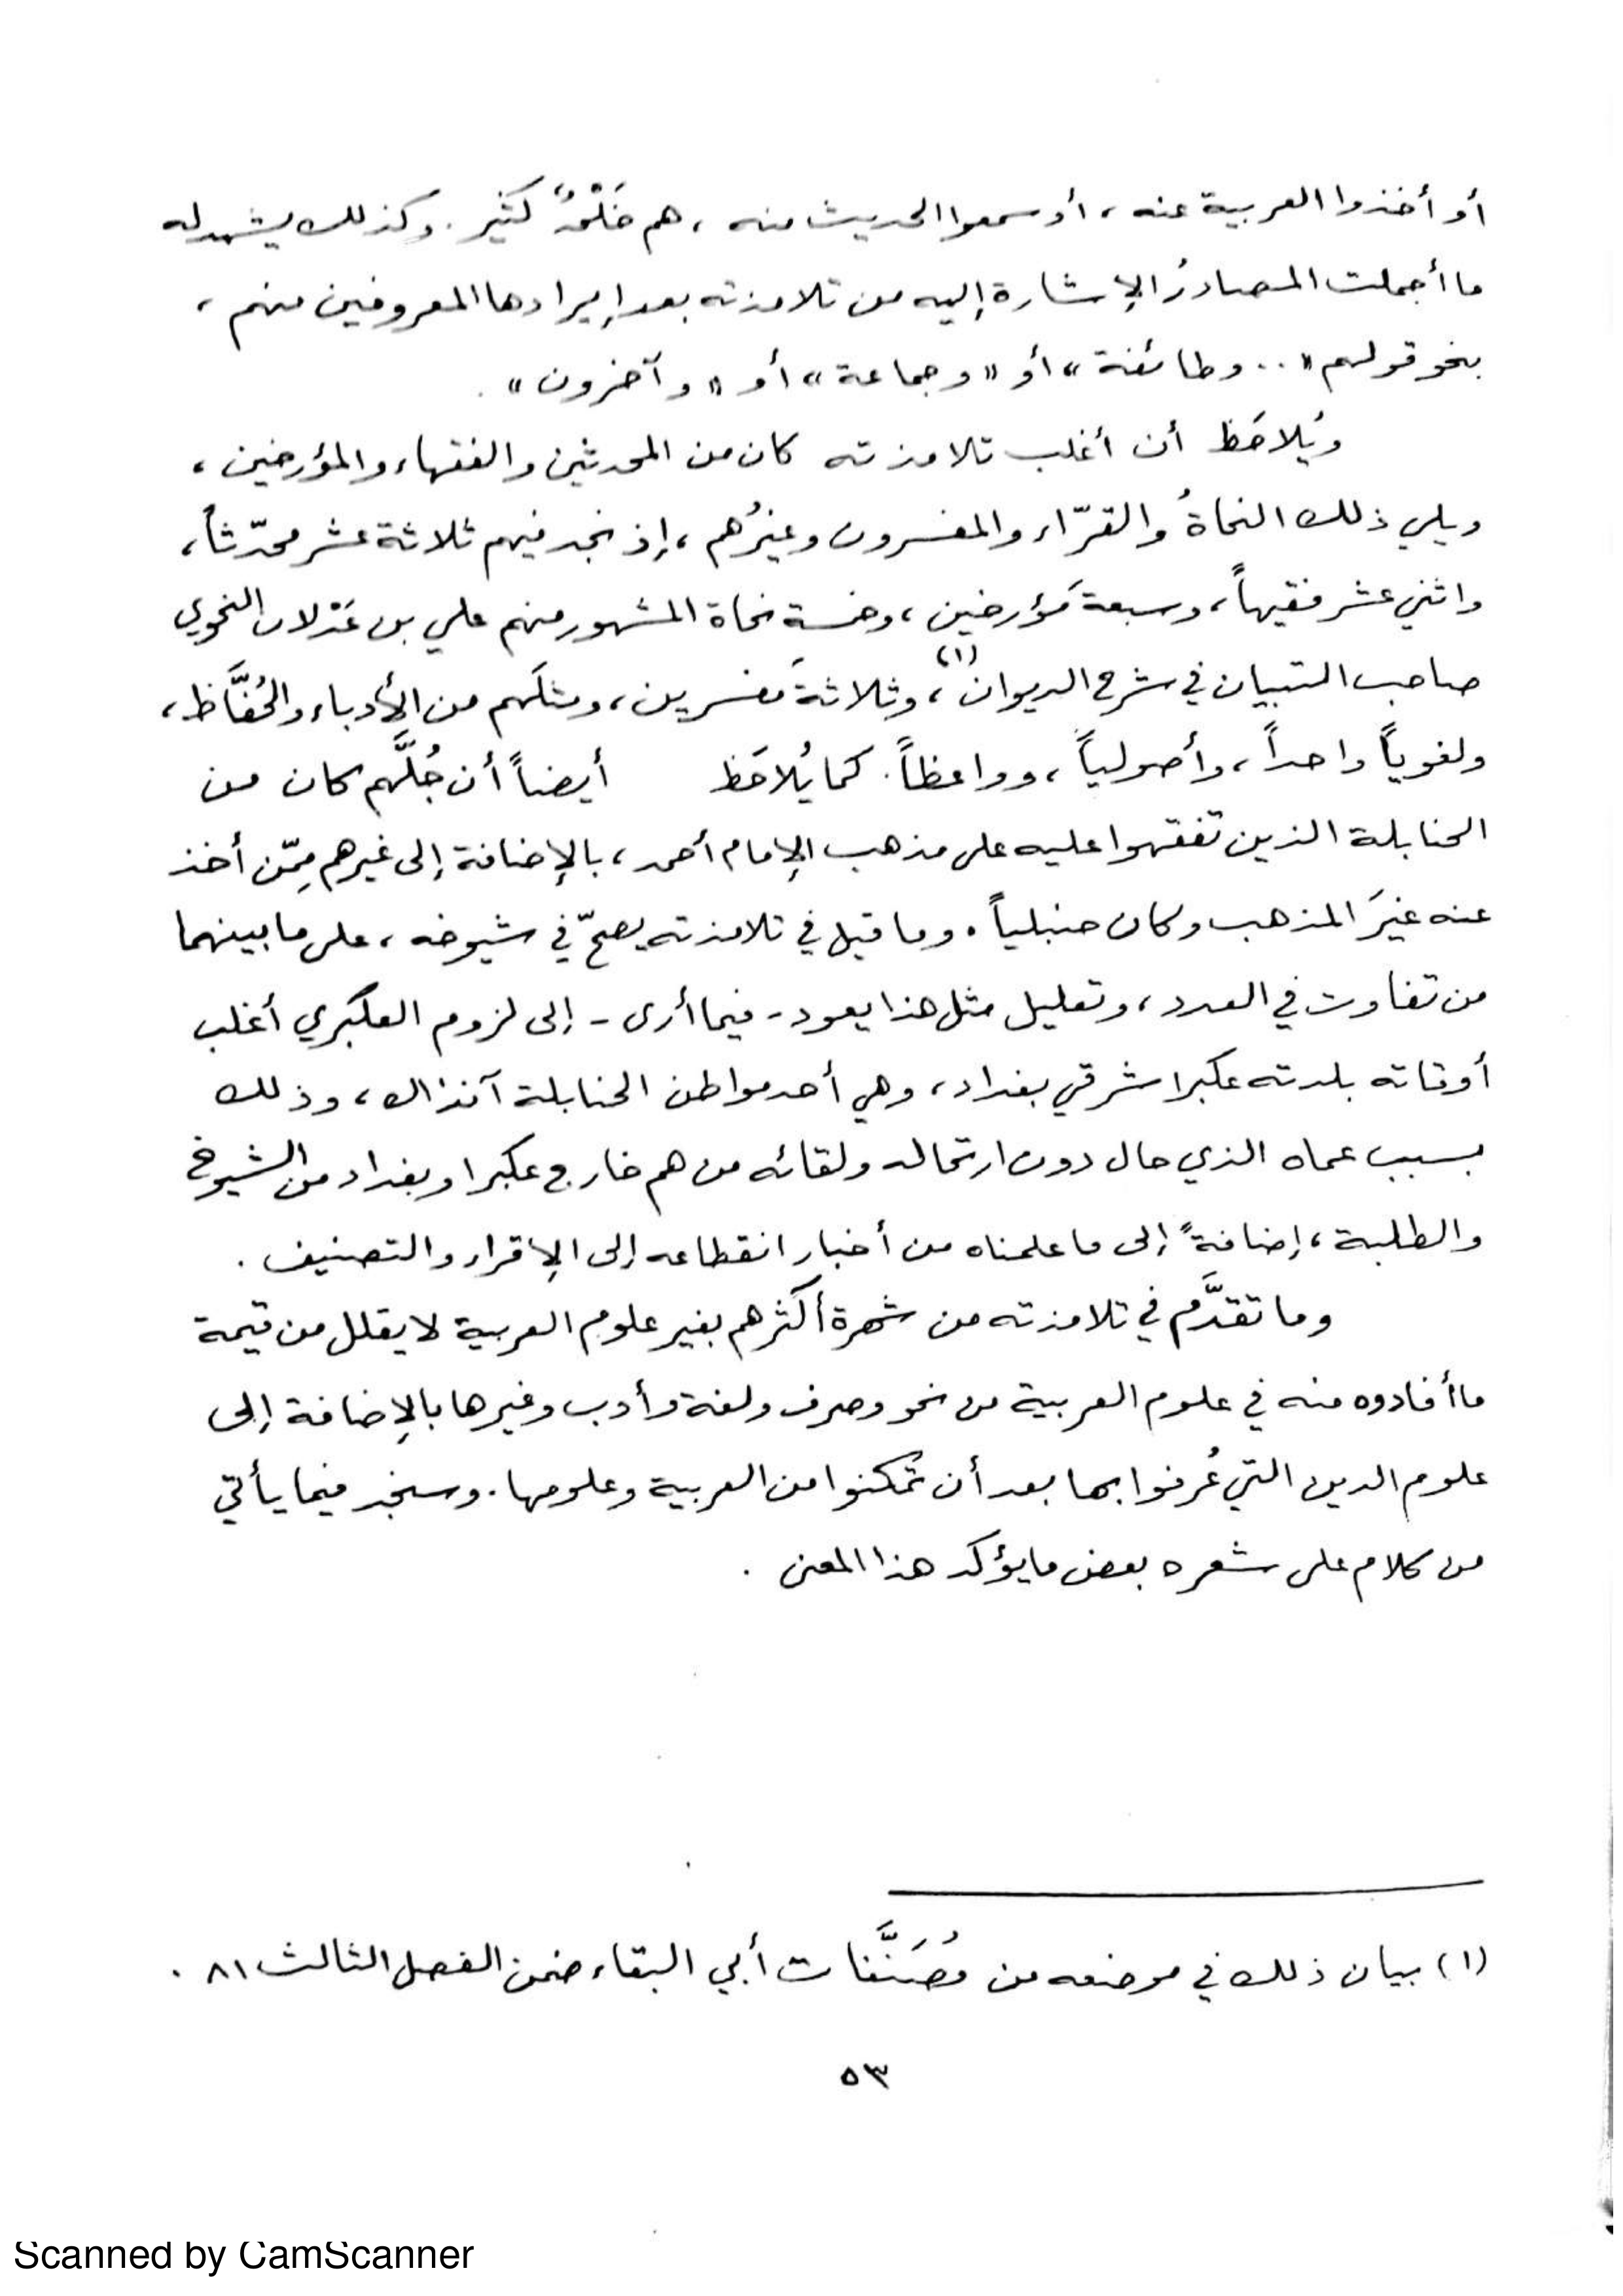 أو أخذوا العربية عنه ، أو سمعوا الحديث منه ، هم خَلْقٌ كثير . وكذلك يشهد له
ما أجملت المصادرُ الإشارة إليه من تلامذته بعد إيرادها المعروفين منهم ،
بنحو قولهم « .. وطائفة » أو « وجماعة » أو « وآخرون » .
ويُلاحَظ أن أغلب تلامذته كان من المحدثين والفقهاء والمؤرخين ،
ويلي ذلك النحاةُ والقرّاء والمفسرون وغيرُهم ، إذ نجد فيهم ثلاثة عشر محدّثاً ،
واثني عشر فقيهاً ، وسبعة مؤرخين ، وخمسة نحاة المشهور منهم علي بن عَدْلان النحوي
صاحب التبيان في شرح الديوان (١) ، وثلاثةَ مفسرين ، ومثلَهم من الأدباء والحُفَّاظ ،
ولغوياً واحداً ، وأصولياً ، وواعظاً . كما يُلاحَظ أيضاً أن جُلَّهم كان من
الحنابلة الذين تفقهوا عليه على مذهب الإمام أحمد ، بالإضافة إلى غيرهم مِمّن أخذ
عنه غيرَ المذهب وكان حنبلياً . وما قيل في تلامذته يصحّ في شيوخه ، على ما بينهما
من تفاوت في العدد ، وتعليل مثل هذا يعود - فيما أرى - إلى لزوم العكبري أغلب
أوقاته بلدته عكبرا شرقي بغداد ، وهي أحد مواطن الحنابلة آنذاك ، وذلك
بسبب عماه الذي حال دون ارتحاله ولقائه من هم خارج عكبرا وبغداد من الشيوخ
والطلبة ، إضافةً إلى ما علمناه من أخبار انقطاعه إلى الإقراء والتصنيف .
وما تقدَّم في تلامذته من شهرة أكثرهم بغير علوم العربية لا يقلل من قيمة
ما أفادوه منه في علوم العربية من نحو وصرف ولغة وأدب وغيرها بالإضافة إلى
علوم الدين التي عُرفوا بها بعد أن تمكنوا من العربية وعلومها . وسنجد فيما يأتي
من كلام على شعره بعض ما يؤكد هذا المعنى .
(١) بيان ذلك في موضعه من مُصَنَّفات أبي البقاء ضمن الفصل الثالث ٨١ .
٥٣
Scanned by CamScanner